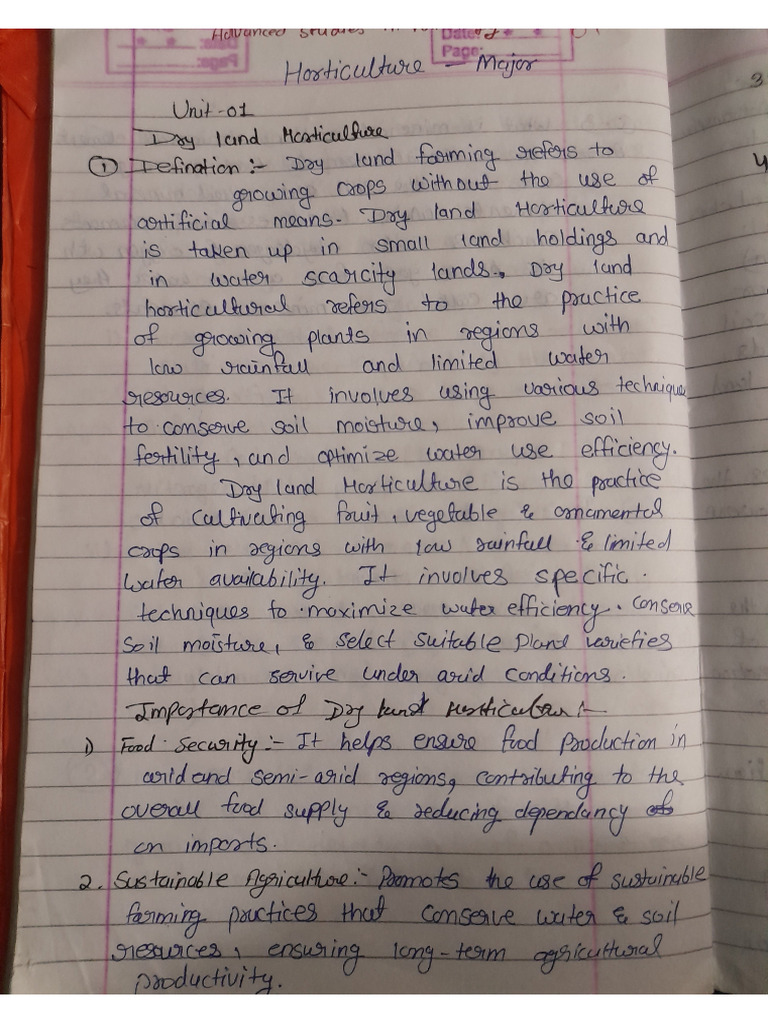 Advanced Studies in
Date:
Page:
Horticulture - Major
Unit-01
Dry land Horticulture
① Defination :- Dry land farming refers to
growing crops without the use of
artificial means. Dry land Horticulture
is taken up in small land holdings and
in water scarcity lands., Dry land
horticultural refers to the practice
of growing plants in regions with
low rainfall and limited water
resources. It involves using various techniques
to conserve soil moisture, improve soil
fertility, and optimize water use efficiency.
Dry land Horticulture is the practice
of cultivating fruit, vegetable & ornamental
crops in regions with low rainfall & limited
water availability. It involves specific
techniques to maximize water efficiency. conserve
soil moisture, & select suitable plant varieties
that can servive under arid conditions.
Importance of Dry land Horticulture :-
1) Food Security :- It helps ensure food production in
arid and semi-arid regions, contributing to the
overall food supply & reducing dependancy
on imports.
2. Sustainable Agriculture :- Promotes the use of sustainable
farming practices that conserve water & soil
resources, ensuring long-term agricultural
productivity.